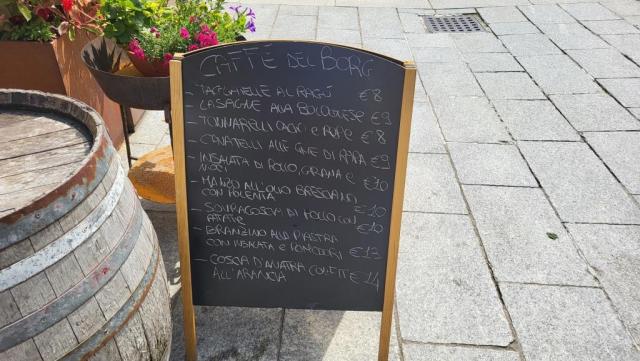 CAFFÈ DEL BORG
- TAGLIATELLE AL RAGÙ €8
- LASAGNE ALLA BOLOGNESE €9
- TONNARELLI CACIO e PEPE €8
- CAVATELLI ALLE CIME DI RAPA €9
- INSALATA DI POLLO, GRANA e €10
NOCI
- MANZO ALL'OLIO BRESCIANO
CON POLENTA €10
- SOVRACOSCIA DI POLLO CON
PATATE €10
- BRANZINO ALLA PIASTRA
CON INSALATA e POMODORI €13
- COSCIA D'ANATRA CONFIT €14
ALL'ARANCIA